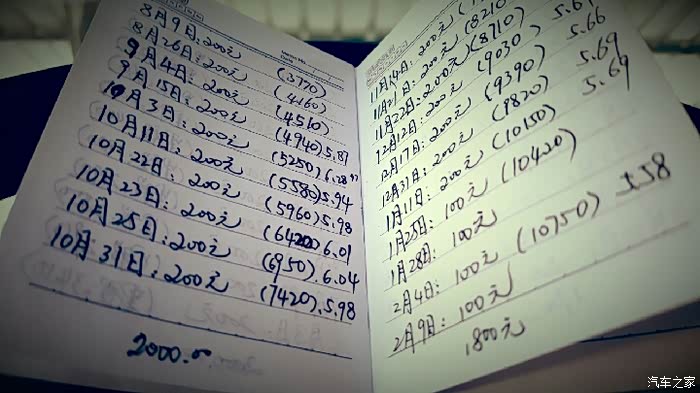 8月9日:200元 (3770)
8月26日:200元 (4160)
9月4日:200元 (4510)
9月15日:200元 (4940) 5.87
10月3日:200元 (5250) 6.28
10月11日:200元 (5580) 5.94
10月22日:200元 (5960) 5.98
10月23日:200元 (6420) 6.01
10月25日:200元 (6950) 6.04
10月31日:200元 (7420) 5.98
2000.
11月14日:200元 (8210) 5.67
11月21日:200元 (8710) 5.66
11月22日:200元 (9030)
12月12日:200元 (9390) 5.69
12月17日:200元 (9820) 5.69
12月31日:200元 (10150)
1月11日:200元 (10420)
1月25日:100元
1月28日:100元 (10750) 5.58
2月4日:100元
2月9日:100元
1800元
汽车之家